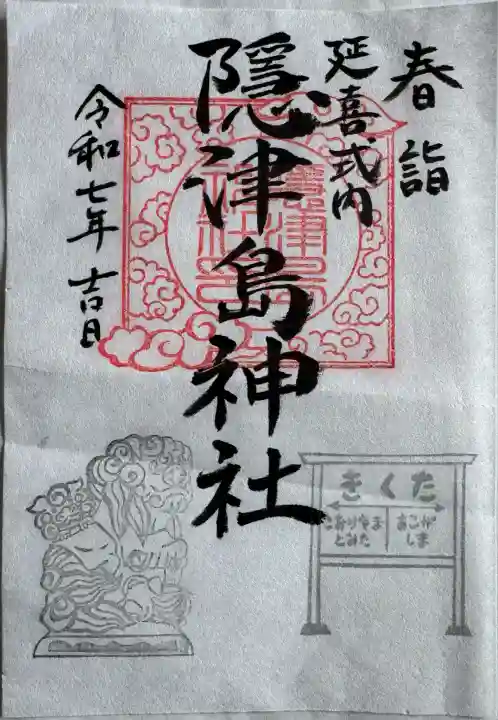 春詣
延喜式内
隠津島神社
令和七年 吉日
きくた
こおりやま
とみた
あこがしま